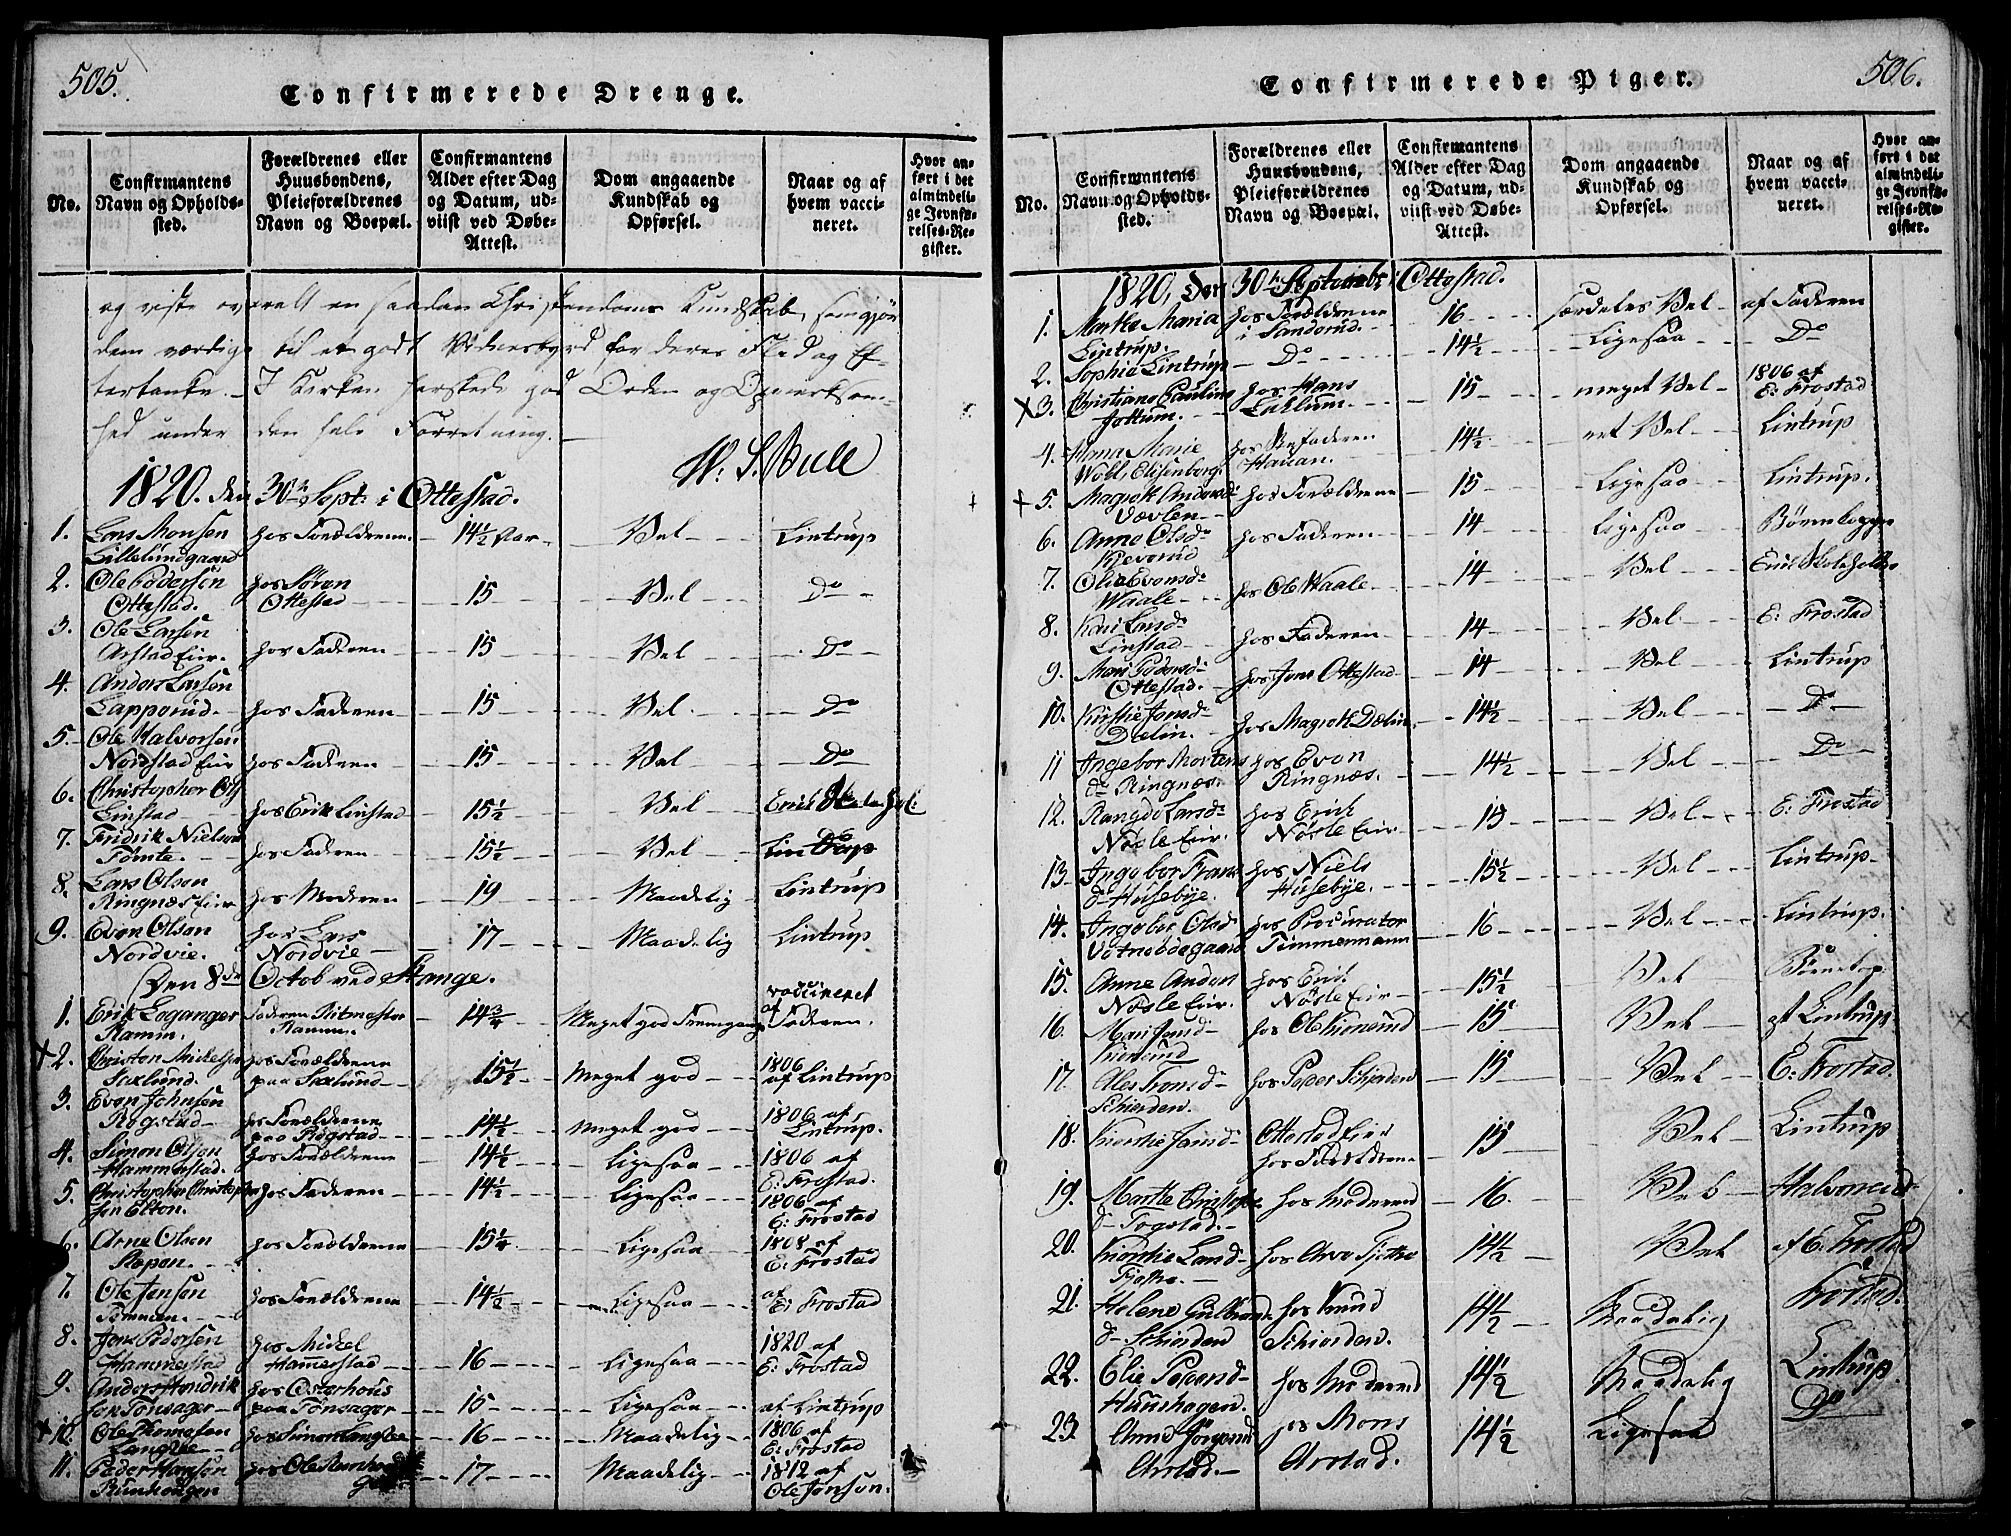 505.
Confirmerede Drenge.
No.
Confirmantens Navn og Opholds-sted.
Forældrenes eller Huusbondens, Pleieforældrenes Navn og Boepæl.
Confirmantens Alder efter Dag og Datum, ud-viist ved Døbe-Attest.
Dom angaaende Kundskab og Opførsel.
Naar og af hvem vacci-neret.
Hvor an-ført i det almindeli-ge Jevnfø-relses-Re-gister.
og viste overalt en saadan Christendoms Kundskab, som gjør
dem værdige til et godt Vidnesbyrd for deres Flid og Ef-
tertanke. I Kirken herskede god Orden og Opmerksom-
hed under den hele Forretning.
W. S. Bull
1820. den 30te Sept: i Ottestad.
1. Lars Monsen Lillelundgaard hos Forældrene 14½ Aar Vel Lintrup
2. Ole Pedersen Ottestad. hos Søren Ottestad 15 Vel Do
3. Ole Larsen Arstad Eier. hos Faderen 15 Vel Do
4. Anders Larsen Lapperud. hos Faderen 15 Vel Do
5. Ole Halvorsen Nordstad Eier hos Faderen 15 Vel Do
6. Christopher Ols Linstad hos Erik Linstad 15½ Vel Erik
7. Fridrik Nielsen Tomte. hos Faderen 15½ Vel Do
8. Lars Olsen Ringnæs Eier hos Moderen 19 Maadelig Lintrup
9. Even Olsen Nordvie. hos Lars Nordvie 17 Maadelig Lintrup
Den 8de Octob ved Stange.
1. Erik Leganger Ramm. Faderen Ritmester Ramm. 14¾ Meget god Fremgang vaccineret af Faderen.
x 2. Christen Mickelsen Saxlund. hos Forældrene paa Saxlund 15½ Meget god 1806 af Lintrup
3. Even Johnsen Rogstad hos Forældrene paa Rogstad 14½ Meget god 1806 af Lintrup.
4. Simon Olsen Hammerstad. hos Forældrene 14½ Ligesaa 1806 af E: Frostad.
5. Christopher Christopher sen Elton. hos Faderen 14½ Ligesaa 1806 af E: Frostad
6. Arne Olsen hos Forældrene 15¼ Ligesaa 1808 af E: Frostad
7. Ole Jensen Tommen. hos Forældrene 14½ Ligesaa af E: Frostad
8. Jens Pedersen Hammerstad hos Mickel Hammerstad 16 Ligesaa 1820 af E: Frostad
9. Anders Hendrik sen Tønsager hos Osterhous paa Tønsager 15 Ligesaa af Lintrup
x 10. Ole Thomesen Langlie hos Simen Langlie 16 Maadelig 1806 af E: Frostad
11. Peder Hansen hos Ole 17 Maadelig 1812 af Ole Jonsen.
506.
Confirmerede Piger.
No.
Confirmantens Navn og Opholds-sted.
Forældrenes eller Huusbondens, Pleieforældrenes Navn og Boepæl.
Confirmantens Alder efter Dag og Datum, ud-viist ved Døbe-Attest.
Dom angaaende Kundskab og Opførsel.
Naar og af hvem vacci-neret.
Hvor an-ført i det almindeli-ge Jevnfø-relses-Re-gister.
1820, Den 30te Septembr i Ottestad.
1. Marthe Maria Lintrup. hos Forældrene i Sanderud. 16 særdeles Vel af Faderen
2. Sophie Lintrup Do 14½ Ligesaa Do
x 3. Christiane Pauline hos Hans 15 meget Vel 1806 af E: Frostad
4. Hana Marie hos Stifaderen 14½ ret Vel Lintrup
+ 5. Magrete Andersd hos Forældrene 15 Ligesaa Lintrup.
6. Anne Olsd hos Faderen 14 Ligesaa
7. Olia Evensd Waale hos Ole Waale 14 Vel Erik
8. Kari Larsd Linstad hos Faderen 14 Vel E: Frostad
9. Mari Pedersd Ottestad. hos Jens Ottestad 14 Vel Lintrup
10. Kirstie Jensd Dælin. hos Magrete Dælin 14½ Vel Do
11 Ingebor Mortens d Ringnæs. hos Even Ringnæs. 14½ Vel Do
12. Rangdi Larsd Nøsle Eier. hos Erich Nøsle Eier 15 Vel E: Frostad
13. Ingebor Frans d Husebye. hos Niels Husebye. 15½ Vel Lintrup
14. Ingebor Olsd hos Procurator Timmermann 16 Vel Lintrup.
15. Anne Anders Nøsle Eier. hos Erich Nøsle Eier 15½ Vel
16. Mari Jensd hos Ole 15 Vel af Lintrup
17. Ales Fransd Schierden. hos Peder Schierden 15 Vel E: Frostad.
18. Kirstie Ottestad Eier hos Forældrene 15 Vel Lintrup
19. Marthe Christoph d Fogstad. hos Moderen 16. Vel
20. Kirstie Larsd Fjetre. hos Arve Fjetre 14½ Vel af E. Frostad
21. Helene Gulbrand d Schierden hos Knud Schierden. 14½ Maadelig Frostad.
22. Elie hos Moderen 14½ Maadelig Lintrup.
23. Anne Jørgensd Arstad. hos Mons Arstad. 14½ Ligesaa Do